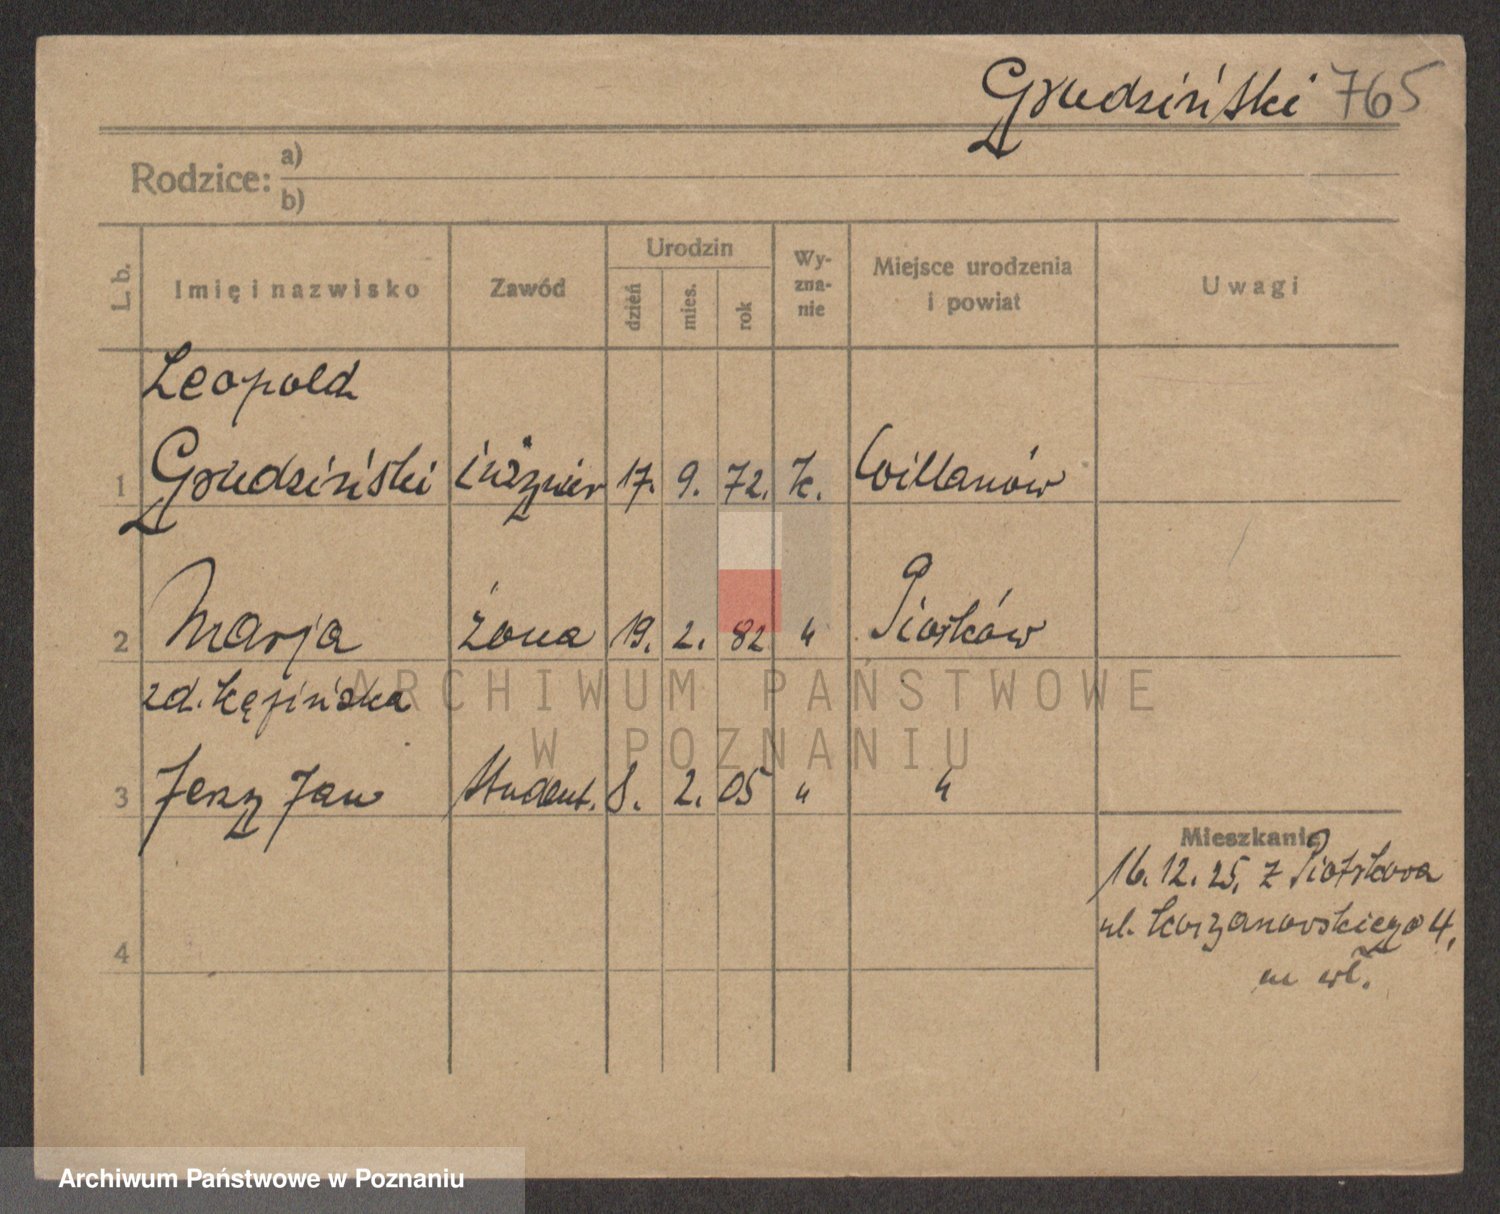 Grudziński 765
Rodzice:
a)
b)
L. b.
Imię i nazwisko
Zawód
Urodzin
dzień
mies.
rok
Wy-
zna-
nie
Miejsce urodzenia
i powiat
Uwagi
Leopold
1 Grudziński inżynier 17. 9. 72. k. Willanów
2 Marja żona 19. 2. 82 " Piotrków
zd.
3 Jerzy Jan student. 8. 2. 05 " "
Mieszkanie
16. 12. 25. z Piotrkowa
ul. 4,
wł.
4
ARCHIWUM PAŃSTWOWE
W POZNANIU
Archiwum Państwowe w Poznaniu